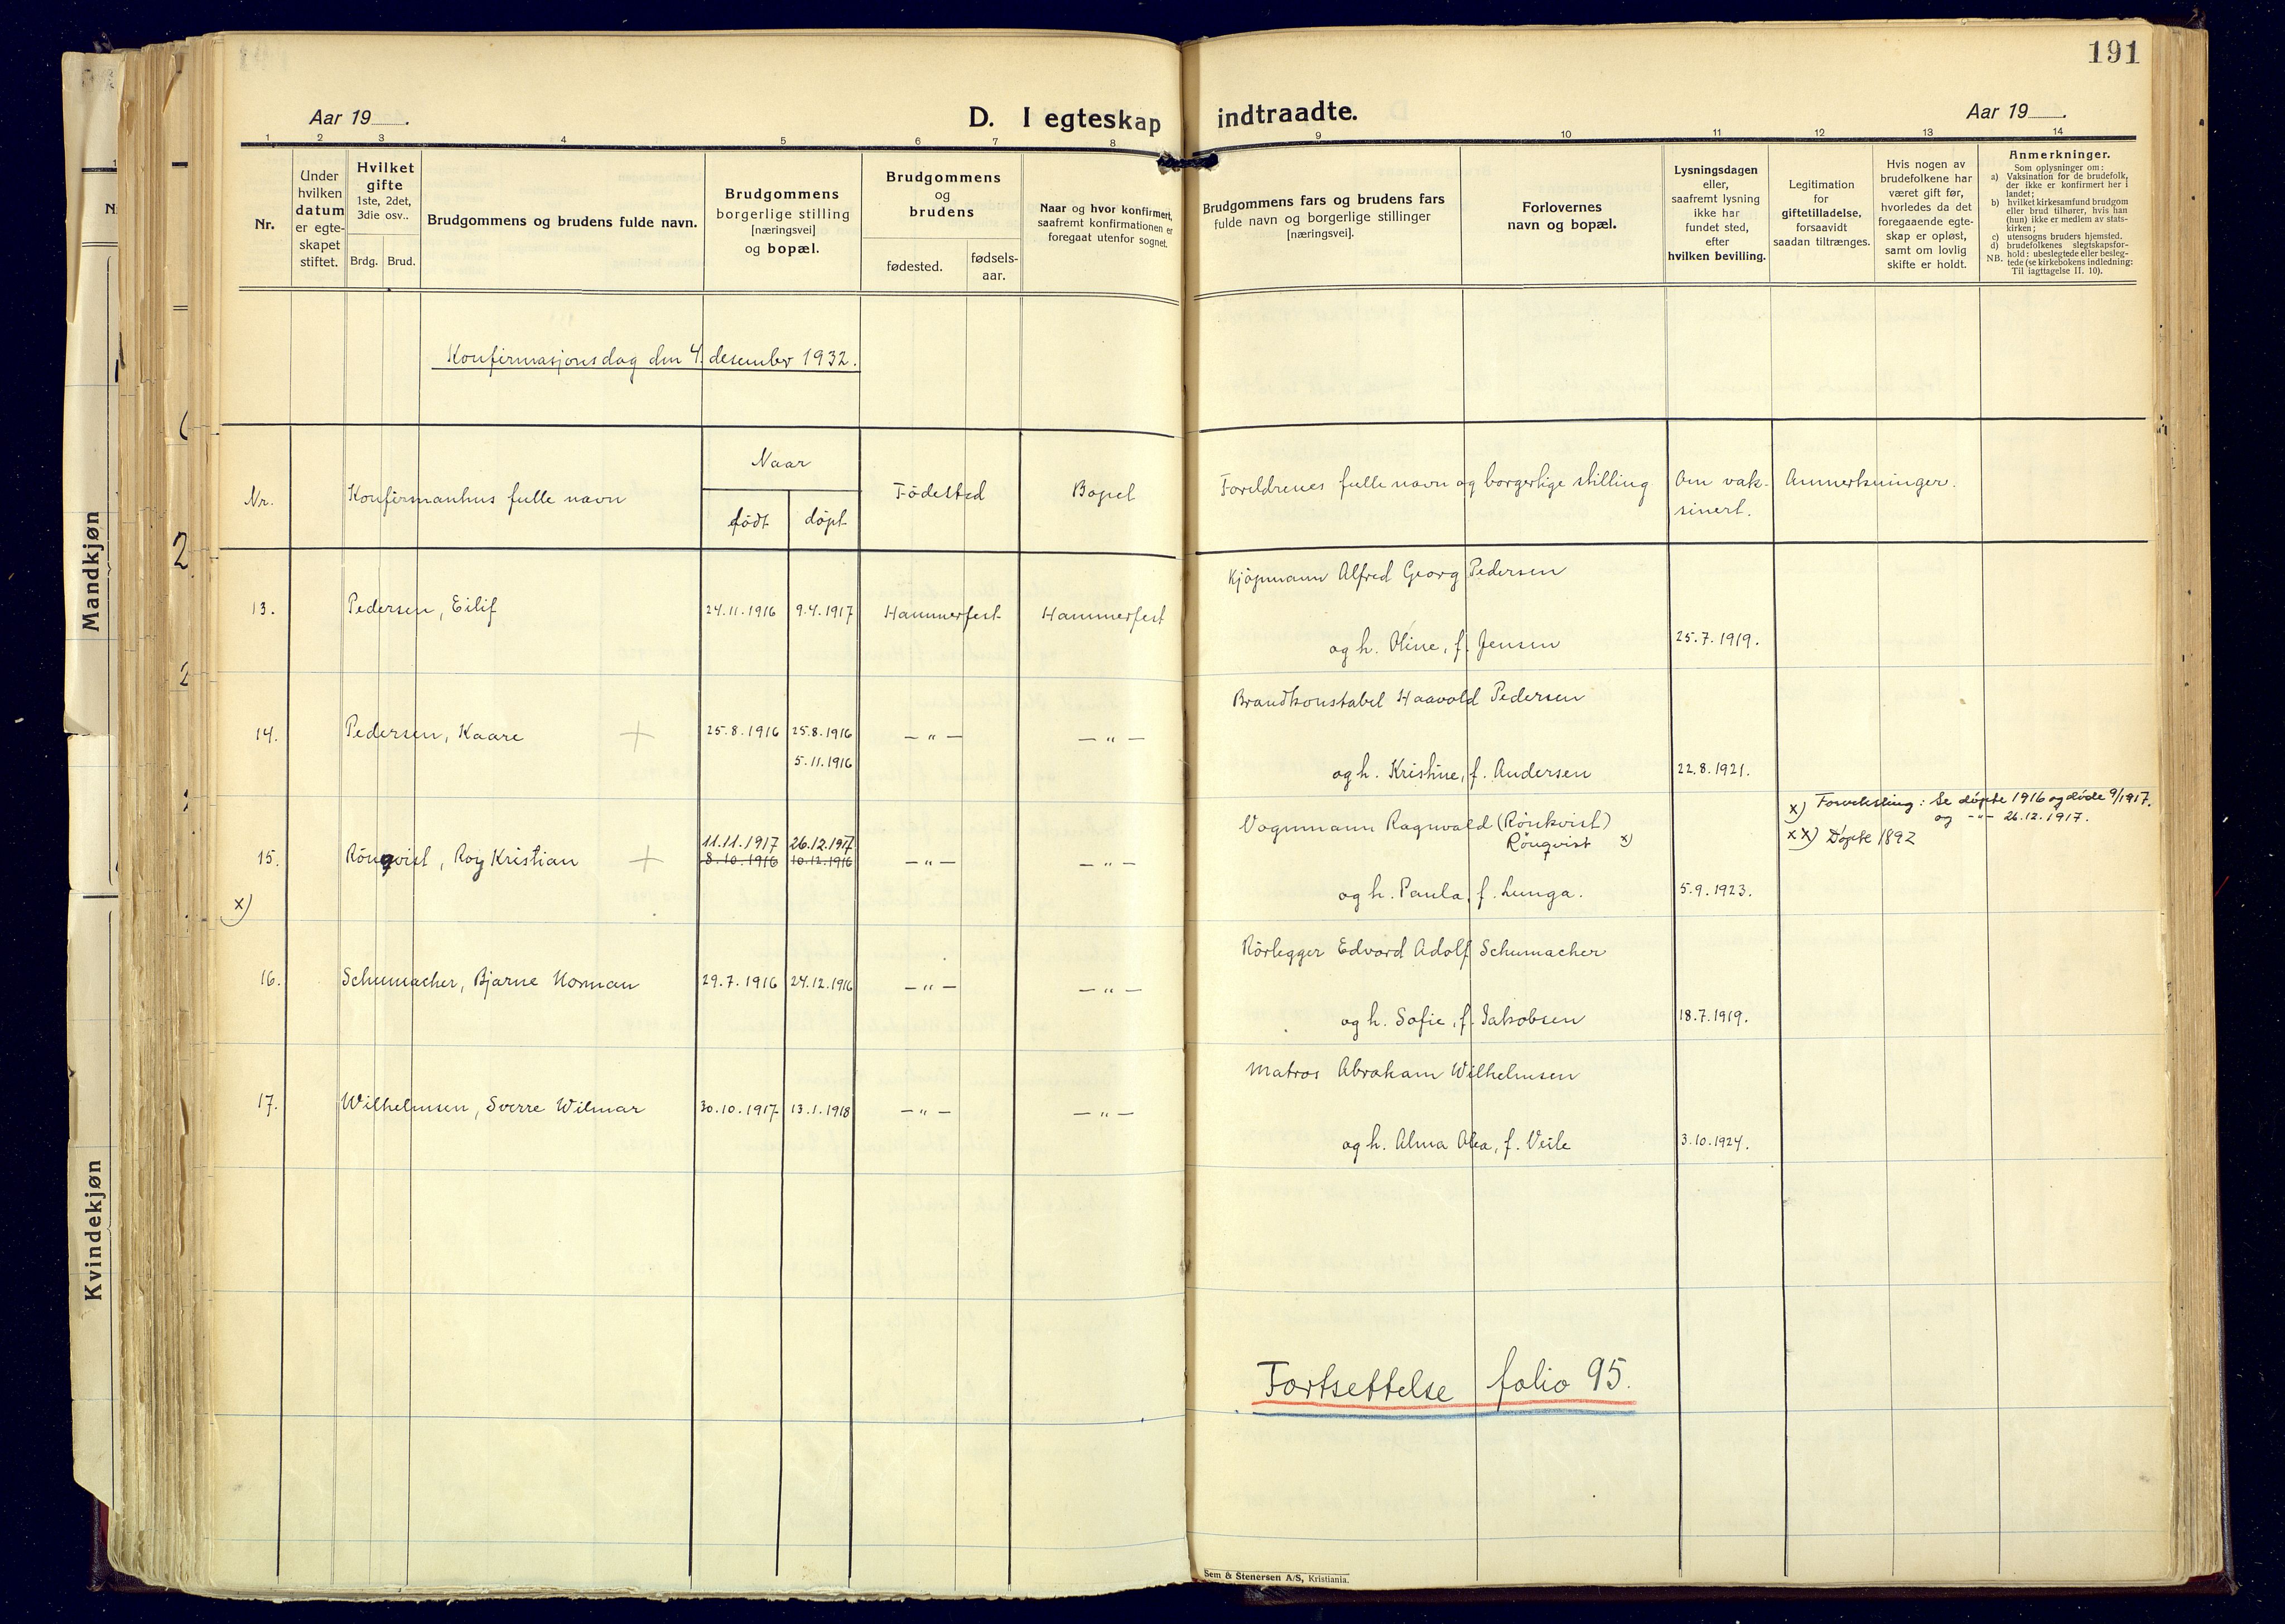 191
Aar 19___.
D. I egteskap indtraadte.
Aar 19___.
1 2 3 4 5 6 7 8 9 10 11 12 13 14
Nr.
Under hvilken datum er egte-
skapet stiftet.
Hvilket gifte
1ste, 2det, 3die osv..
Brdg. Brud.
Brudgommens og brudens fulde navn.
Brudgommens
borgerlige stilling
[næringsvei]
og bopæl.
Brudgommens
og
brudens
fødested.
fødsels-
aar.
Naar og hvor konfirmert,
saafremt konfirmationen er
foregaat utenfor sognet.
Brudgommens fars og brudens fars
fulde navn og borgerlige stillinger
[næringsvei].
Forlovernes
navn og bopæl.
Lysningsdagen
eller,
saafremt lysning
ikke har
fundet sted,
efter
hvilken bevilling.
Legitimation
for
giftetilladelse,
forsaavidt
saadan tiltrænges.
Hvis nogen av
brudefolkene har
været gift før,
hvorledes da det
foregaaende egte-
skap er opløst,
samt om lovlig
skifte er holdt.
Anmerkninger.
Som oplysninger om:
a) Vaksination for de brudefolk,
der ikke er konfirmert her i
landet;
b) hvilket kirkesamfund brudgom
eller brud tilhører, hvis han
(hun) ikke er medlem av stats-
kirken;
c) utensogns bruders hjemsted.
d) brudefolkenes slegtskapsfor-
hold: ubeslegtede eller besleg-
NB. tede (se kirkebokens indledning:
Til iagttagelse II. 10).
Konfirmasjonsdag den 4. desember 1932.
Nr.
Konfirmantens fulle navn
Naar
født døpt
Fødested
Bopel
Foreldrenes fulle navn og borgerlige stilling
Om vak-
sinert.
Anmerkninger.
Kjøpmann Alfred Georg Pedersen
13. Pedersen, Eilif 24.11.1916 9.4.1917 Hammerfest Hammerfest
og h. Oline, f. Jensen 25.7.1919.
Brandkonstabel Haavold Pedersen
14. Pedersen, Kaare + 25.8.1916 25.8.1916 — " — — " —
5.11.1916
og h. Kristine, f. Andersen 22.8.1921.
x) Forveksling: Se døpte 1916 og døde 9/1917.
og -"- 26.12.1917.
Vognmann Ragnvald (Rönkvist)
Rönqvist x)
xx) Døpte 1892
11.11.1917 26.12.1917
15. Rönqvist, Roy Kristian + 8.10.1916 10.12.1916 — " — — " —
x)
og h. Paula, f. Lunga. 5.9.1923.
Rörlegger Edvard Adolf Schumacher
16. Schumacher, Bjarne Norman 29.7.1916 24.12.1916 — " — — " —
og h. Sofie, f. Jakobsen 18.7.1919.
Matros Abraham Wilhelmsen
17. Wilhelmsen, Sverre Wilmar 30.10.1917 13.1.1918 — " — — " —
og h. Alma Alea, f. Veile 3.10.1924.
Fortsettelse folio 95.
Sem & Stenersen A/S, Kristiania.
Mandkjøn
Kvindekjøn